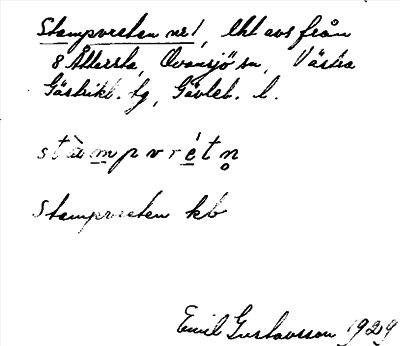 Stampvreten nr 1, lht avs från
8 Åttersta, Ovansjö sn, Västra
Gästrikl. tg, Gävleb. l.
stàmpvrétn̥
Stampvreten kb
Emil Gustavsson 1929